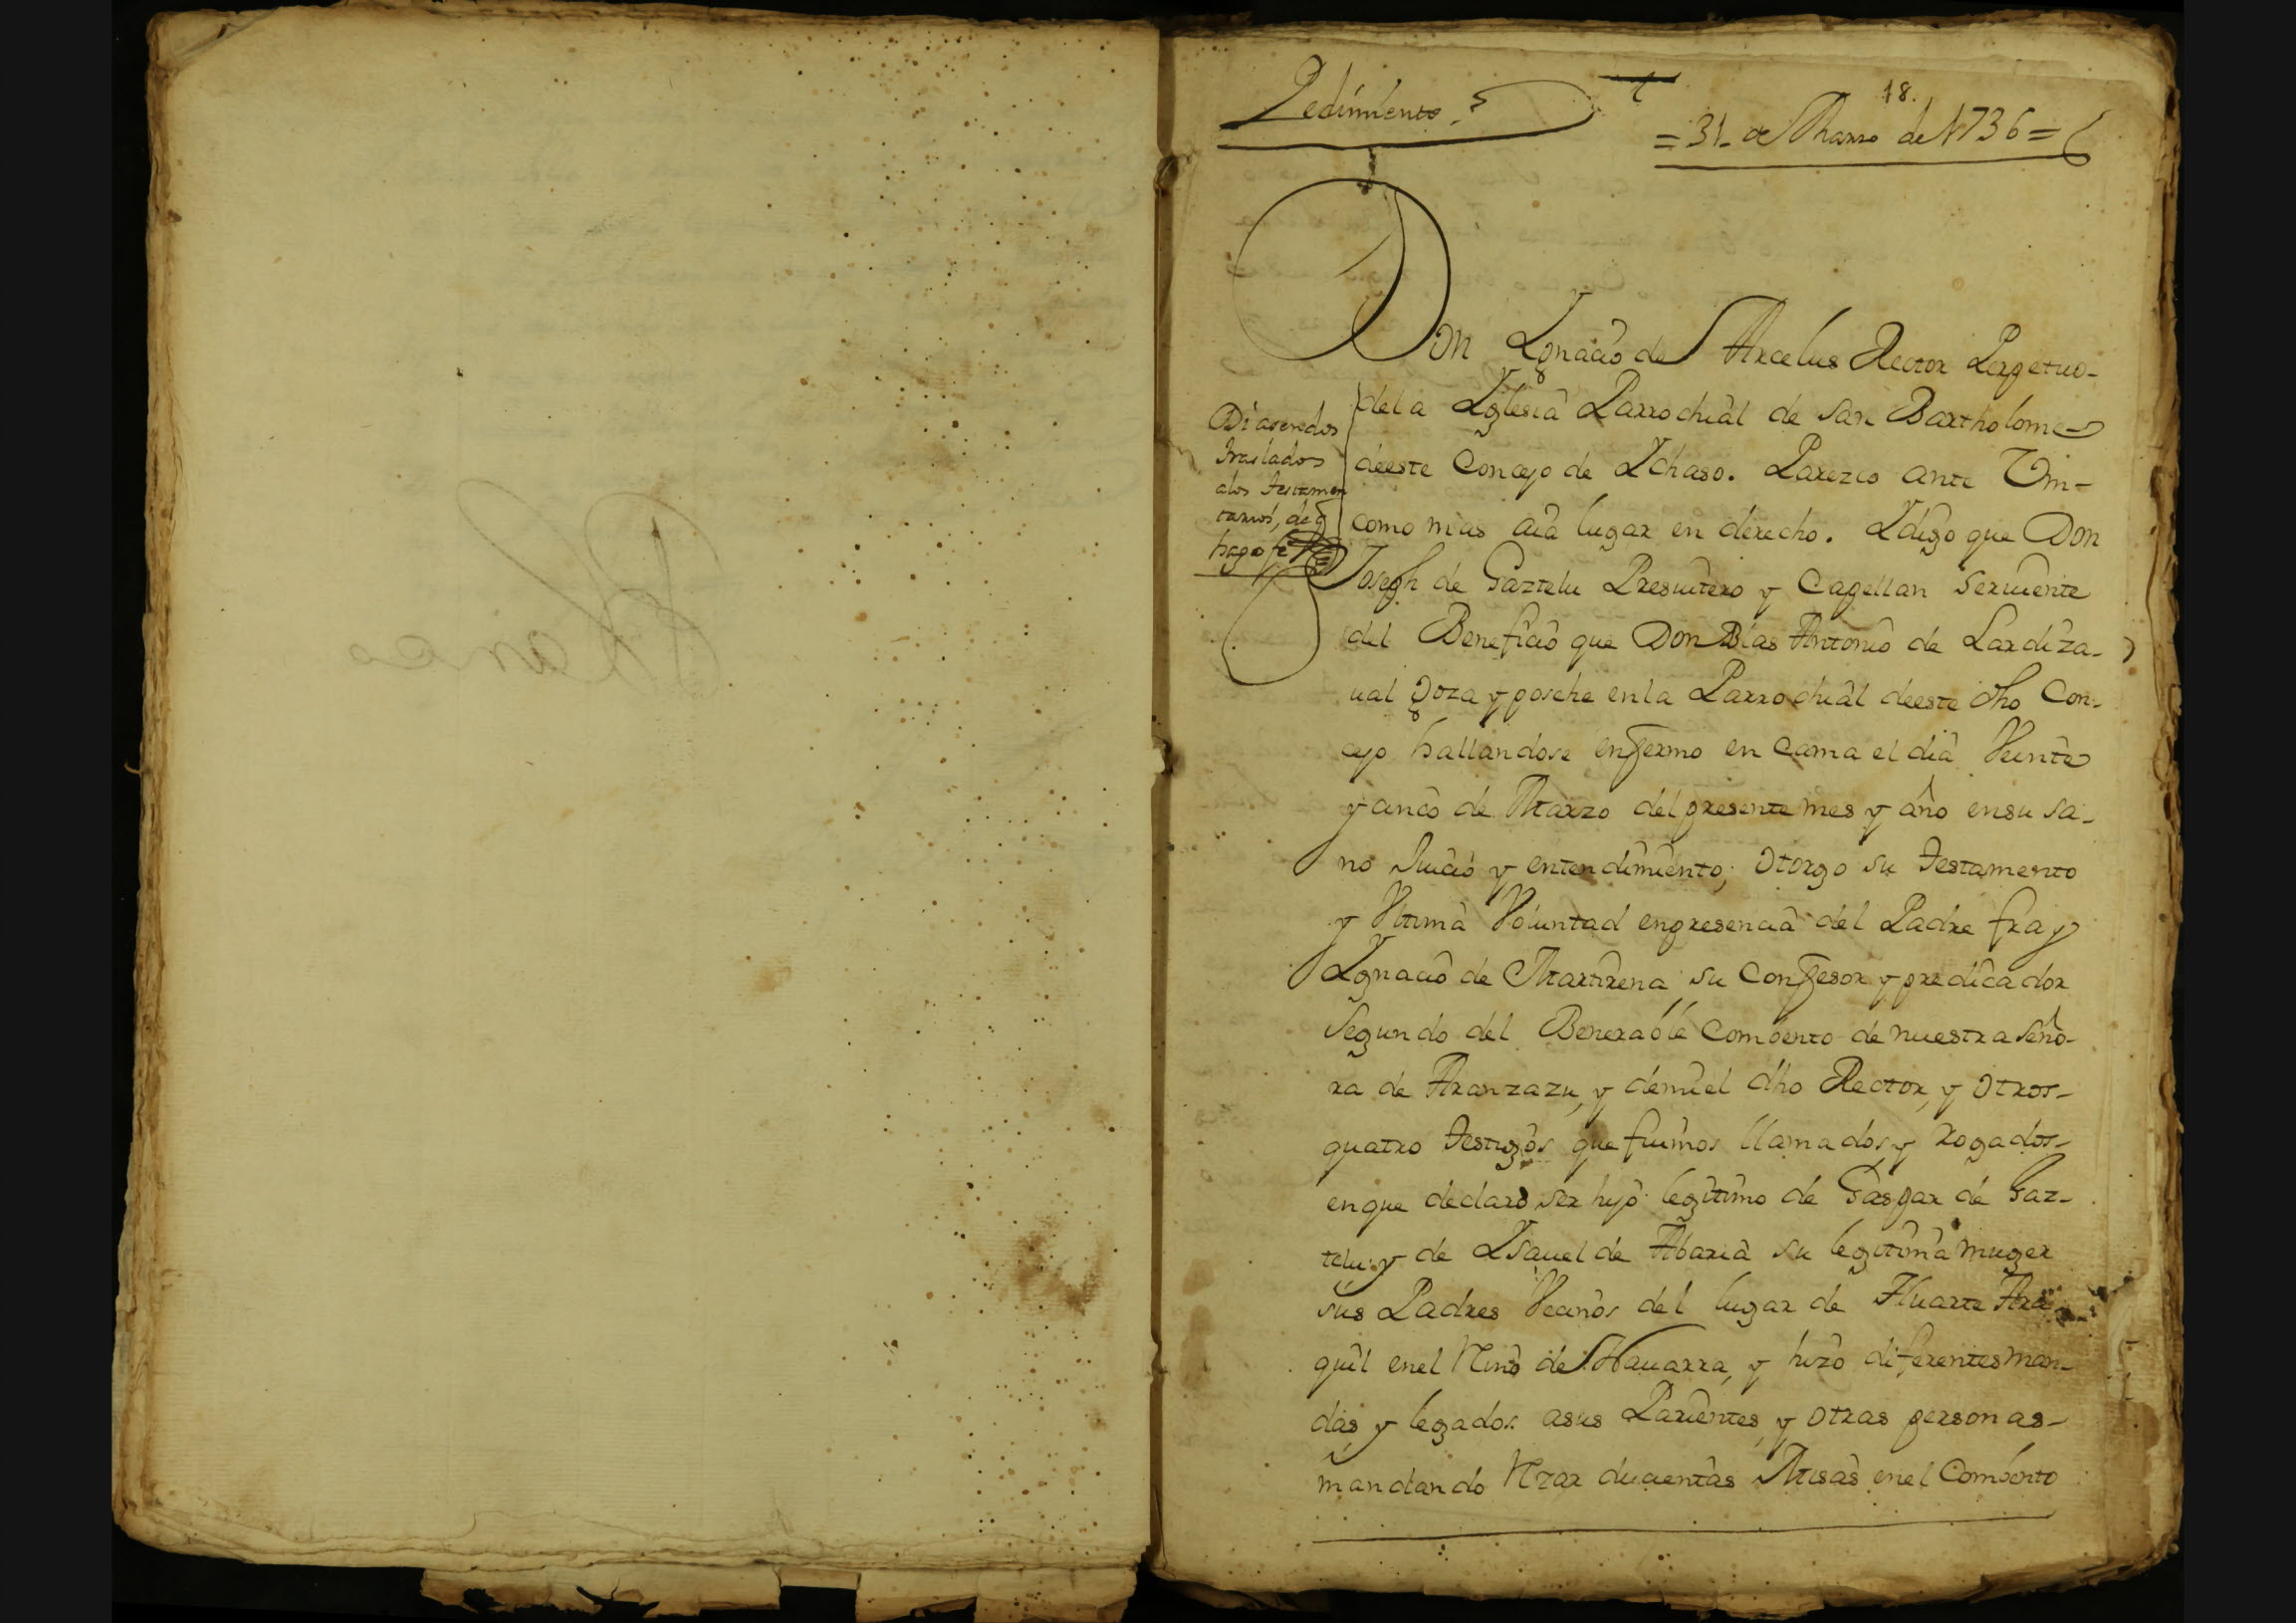 Pedimiento
18.
= 31 de Marzo de 1736 =
Don Ygnacio de Arcelus Rector Perpetuo
dela Yglesia Parrochial de San Bartholome
deeste Concejo de Ychaso. Parezco ante Vm
como mas aia lugar en derecho. Y digo que Don
Joseph de Gaztelu Presuitero y Capellan seruiente
del Beneficio que Don Blas Antonio de Lardiza-
ual Goza y posehe enla Parrochial deeste dho Con-
cejo hallandose enfermo en cama el dia Veinte
y cinco de Marzo del presente mes y año ensu sa-
no Juicio y entendimiento; Otorgo su Testamento
y Vltima Voluntad enpresencia del Padre fray
Ygnacio de Martirena su Confesor y predicador
Segundo del Benerable Combento de nuestra Seño-
ra de Aranzazu, y demi el dho Rector, y otros
quatro Testigos que fuimos llamados y rogados
enque declaro ser hijo legitimo de Gaspar de Gaz-
telu y de Ysauel de Abaria su legitima muger
sus Padres Vecinos del lugar de Huarte Ara-
quil enel Rino de Nauarra, y hizo diferentes man-
das y legados asus Parientes, y otras personas
mandando Rzar ducientas Misas enel Combento
Di aseredos
traslados
alos testamen
tarios, de q
hago fe